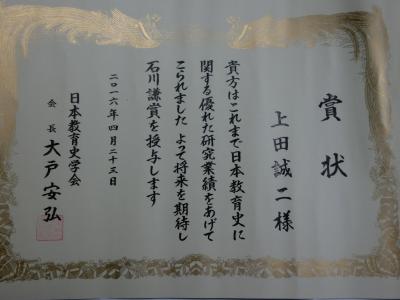 賞状
上田誠二様
貴方はこれまで日本教育史に
関する優れた研究業績をあげて
こられました よって将来を期待し
石川謙賞を授与します
二〇一六年四月二十三日
日本教育史学会
会長 大戸安弘